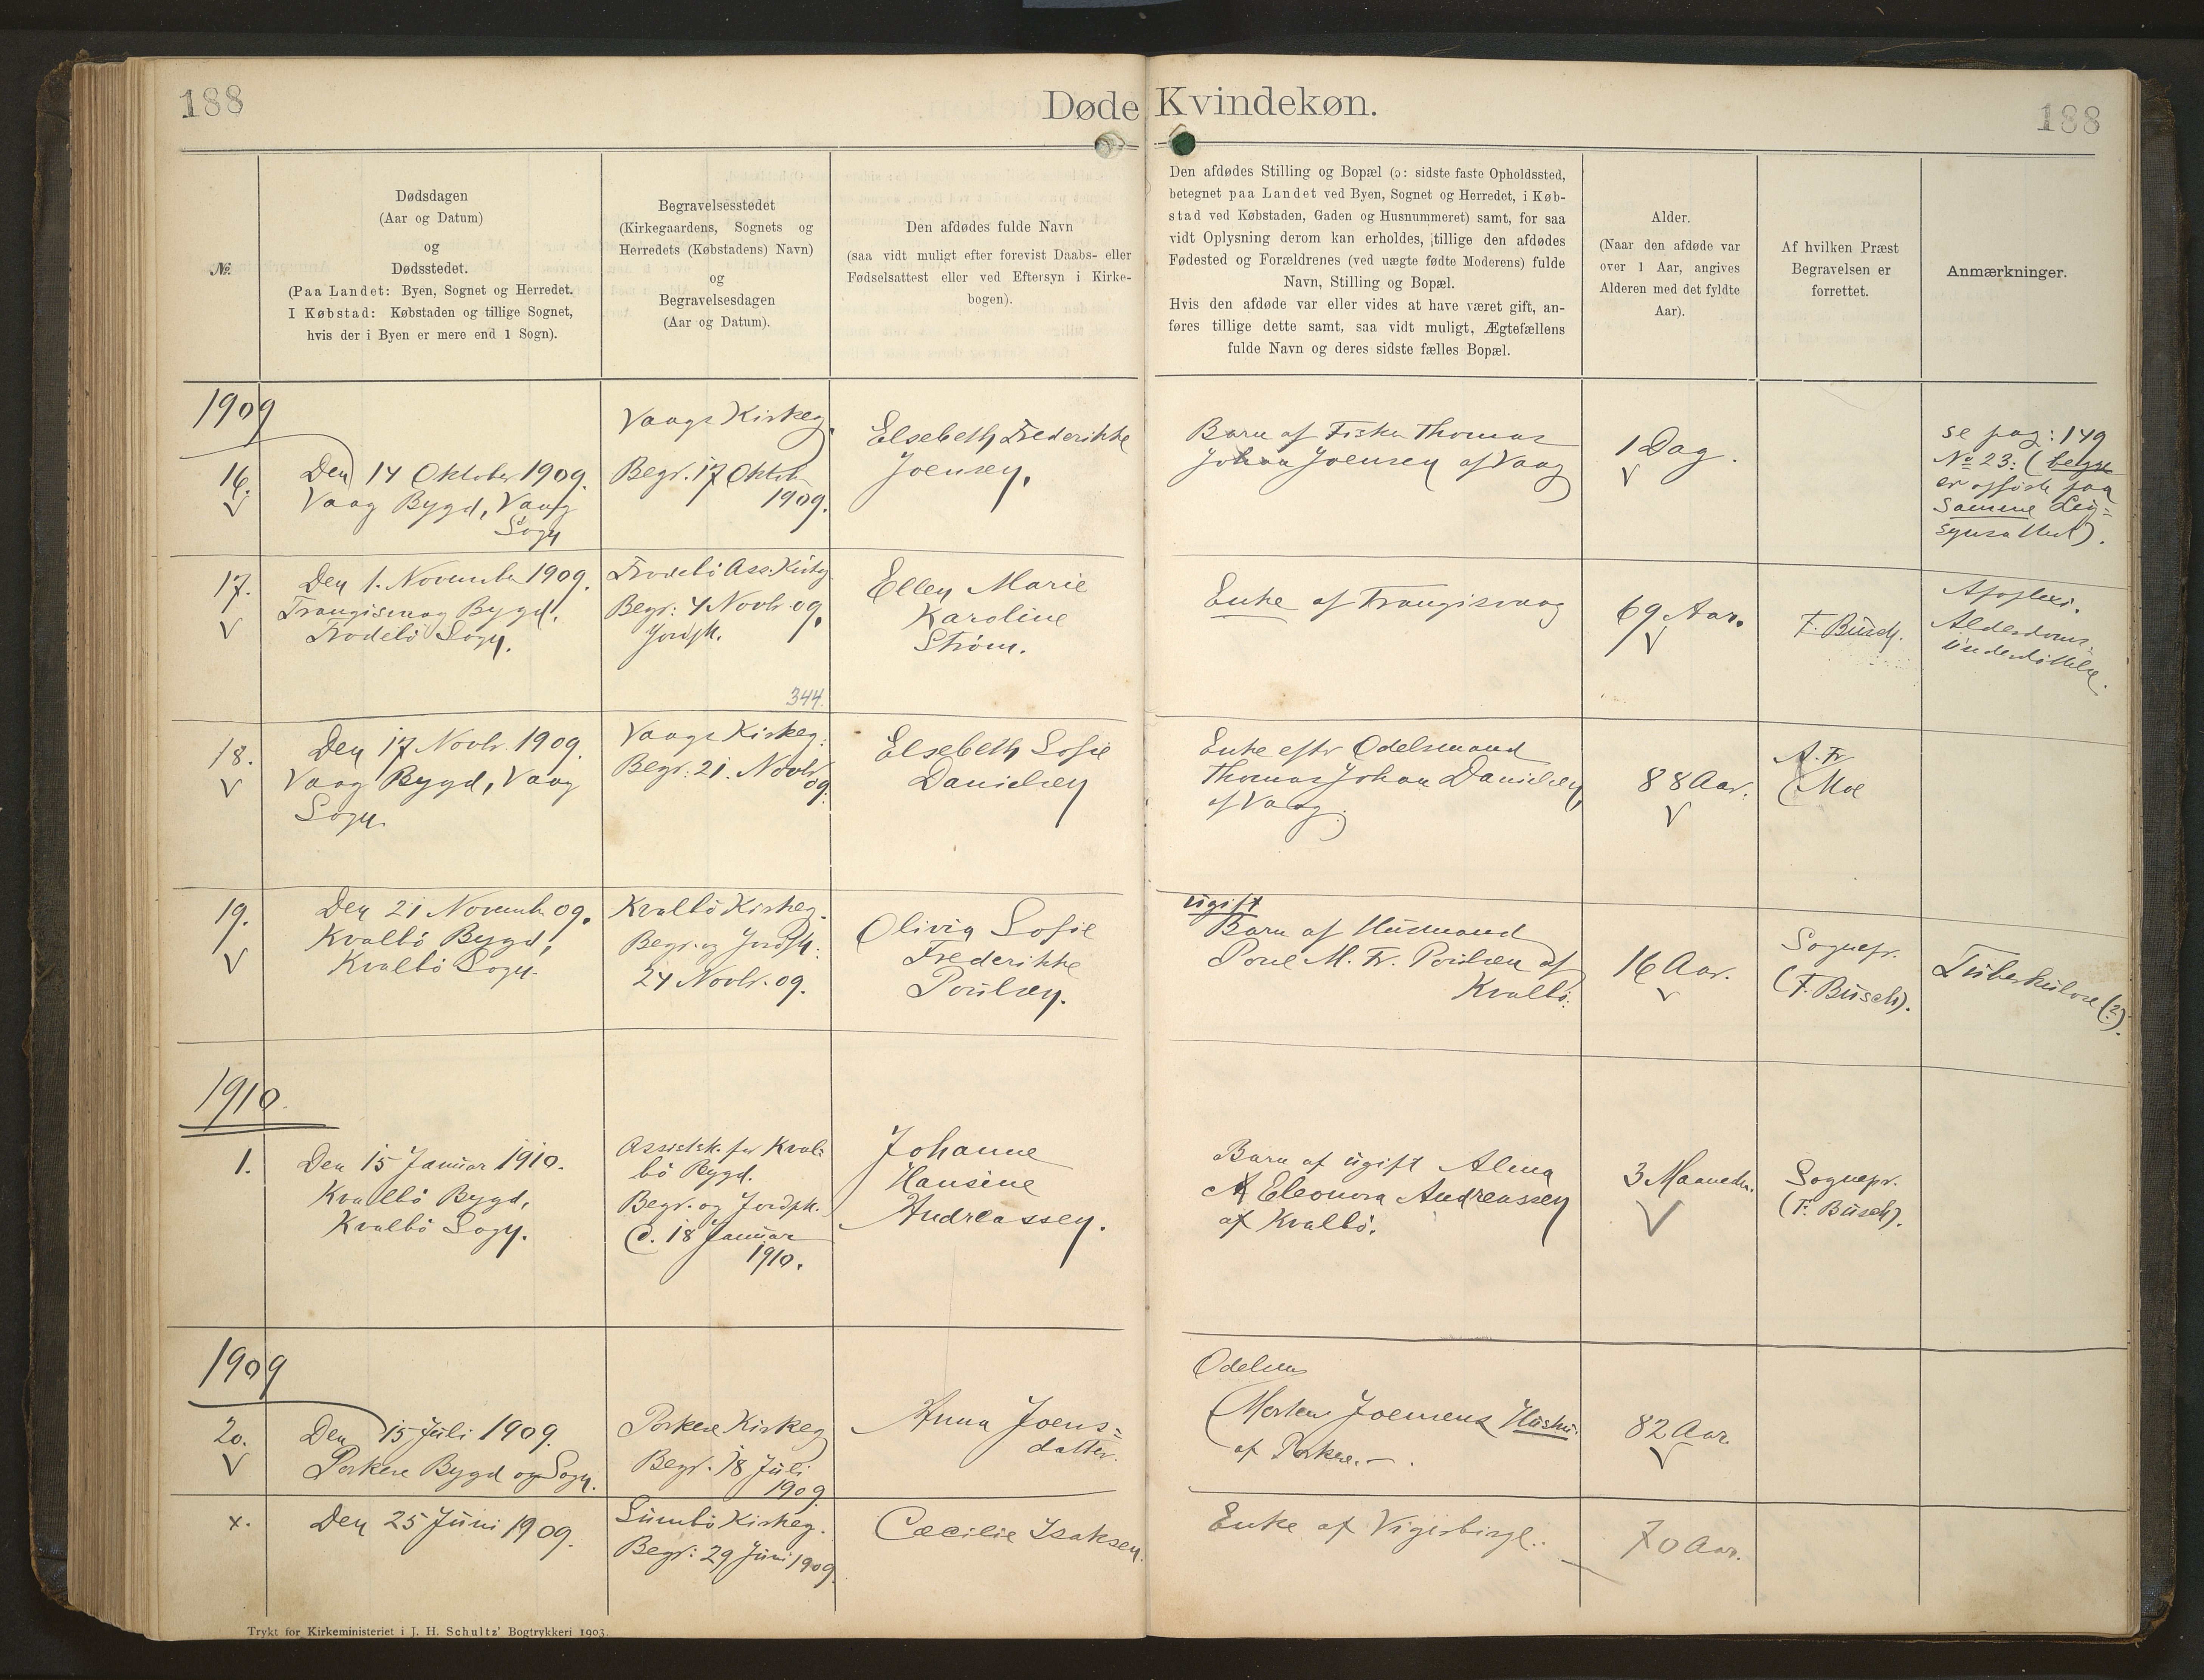 188
Døde Kvindekøn.
188
№
Dødsdagen
(Aar og Datum)
og
Dødsstedet.
(Paa Landet: Byen, Sognet og Herredet.
I Købstad: Købstaden og tillige Sognet,
hvis der i Byen er mere end 1 Sogn).
Begravelsesstedet
(Kirkegaardens, Sognets og
Herredets (Købstadens) Navn)
og
Begravelsesdagen
(Aar og Datum).
Den afdødes fulde Navn
(saa vidt muligt efter forevist Daabs- eller
Fødselsattest eller ved Eftersyn i Kirke-
bogen).
Den afdødes Stilling og Bopæl (ɔ: sidste faste Opholdssted,
betegnet paa Landet ved Byen, Sognet og Herredet, i Køb-
stad ved Købstaden, Gaden og Husnummeret) samt, for saa
vidt Oplysning derom kan erholdes, tillige den afdødes
Fødested og Forældrenes (ved uægte fødte Moderens) fulde
Navn, Stilling og Bopæl.
Hvis den afdøde var eller vides at have været gift, an-
føres tillige dette samt, saa vidt muligt, Ægtefællens
fulde Navn og deres sidste fælles Bopæl.
Alder.
(Naar den afdøde var
over 1 Aar, angives
Alderen med det fyldte
Aar).
Af hvilken Præst
Begravelsen er
forrettet.
Anmærkninger.
1909
16.
Den 14 Oktober 1909.
Vaag Bygd, Vaag
Sogn
Vaags Kirkeg.
Begr. 17 Oktob
1909.
Elsebeth Frederikke
Joensen.
Barn af Fisker Thomas
Johan Joensen af Vaag
1 Dag.
se pag: 149
No 23: (begge
er opførte paa
samme Lig=
synsattest).
17.
Den 1. November 1909.
Trangisvaag Bygd,
Frodebö Sogn.
Frodebö Ass. Kirkeg
Begr: 4 Novbr. 09.
Jordpk.
344.
Ellen Marie
Karoline
Strøm.
Enke af Trangisvaag
69 Aar.
F. Busch.
Apoplexi.
Alderdoms-
understöttelse.
18.
Den 17 Novbr. 1909.
Vaag Bygd, Vaag
Sogn.
Vaags Kirkeg:
Begr: 21. Novbr
09.
Elsebeth Sofie
Danielsen
Enke eftr Odelsmand
Thomas Johan Danielsen,
af Vaag.
88 Aar.
A. Fr
(Moe
19.
Den 21 Novemb. 09.
Kvalbö Bygd,
Kvalbö Sogn.
Kvalbö Kirkeg.
Begr. og Jordpk:
24 Novbr. 09.
Olivia Sofie
Frederikke
Poulsen.
ugift
Barn af Husmand
Poul M. Fr. Poulsen af
Kvalbö.
16 Aar.
Sognepr.
(F. Busch).
Tuberkulose (?).
1910.
1.
Den 15 Januar 1910.
Kvalbö Bygd,
Kvalbö Sogn.
Assistk. for Kval-
bö Bygd.
Begr. og Jordpk.
d. 18 Januar
1910.
Johanne
Hansine
Andreassen.
Barn af ugift Alma
Eleonora Andreassen
af Kvalbö.
3 Maaneder.
Sognepr.
(F. Busch).
1909
20.
Den 15 Juli 1909.
Porkere Bygd og Sogn.
Porkere Kirkeg
Begr. 18 Juli
1909
Anna Joens=
datter.
Odelsm
Morten Joensens Hustru.
af Porkere.
82 Aar
x.
Den 25 Juni 1909.
Sumbö Kirkeg.
Begr: 29 Juni 1909
Cæcilie Isaksen.
Enke af
70 Aar.
Trykt for Kirkeministeriet i J. H. Schultz' Bogtrykkeri 1903.